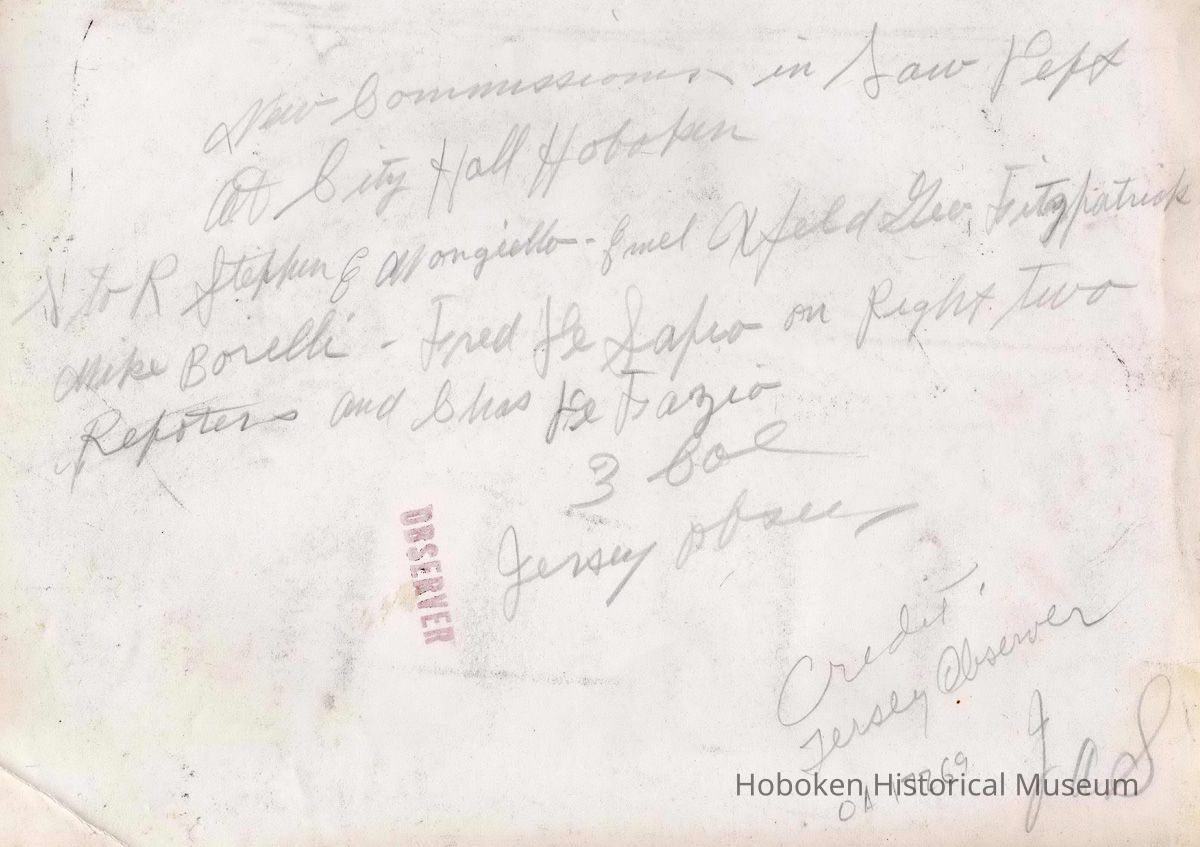 New Commissioners in Law Dept
At City Hall Hoboken
L to R Stephen E Mongiello - Geo. Fitzpatrick
Mike Borelli - Fred De Sapio on Right two
Repoters and Chas De Fazio
3 Col
Jersey Obser
OBSERVER
Credit:
Jersey Observer
OA
JAS
Hoboken Historical Museum